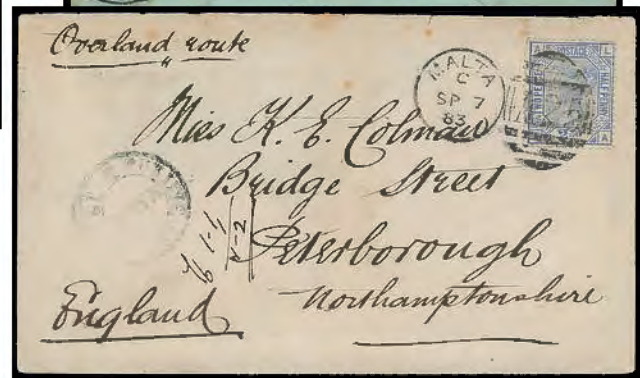 Overland route
MALTA
C
SP 7
83
A POSTAGE L
HALFPENNY
A
Miss K. E. Colman
Bridge Street
Peterborough
Northamptonshire
England